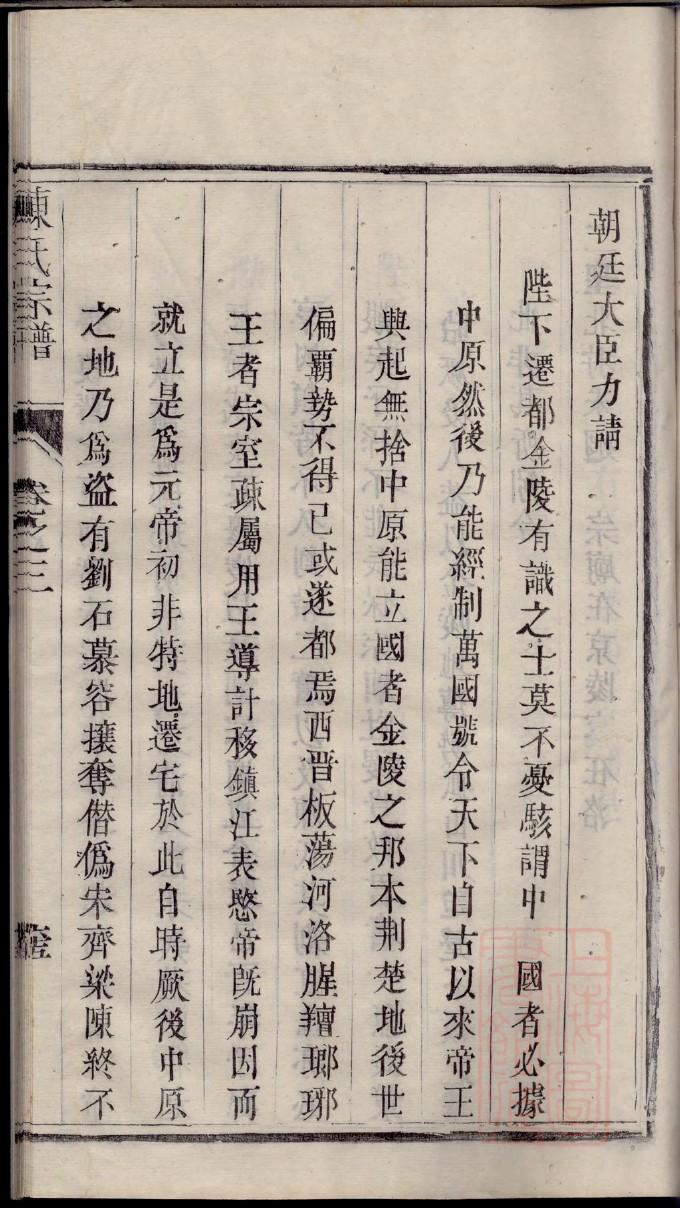 朝廷大臣力請
陛下遷都金陵有識之士莫不憂駭謂中　國者必據
中原然後乃能經制萬國號令天下自古以來帝王
興起無捨中原能立國者金陵之邦本荆楚地後世
偏覇勢不得已或遂都焉西晋板蕩河洛腥羶瑯琊
王者宗室疎屬用王導計移鎮江表愍帝旣崩因而
就立是爲元帝初非特地遷宅於此自時厥後中原
之地乃爲盜有劉石慕容攘奪僣僞宋齊梁陳終不
陳氏宗譜
卷之三